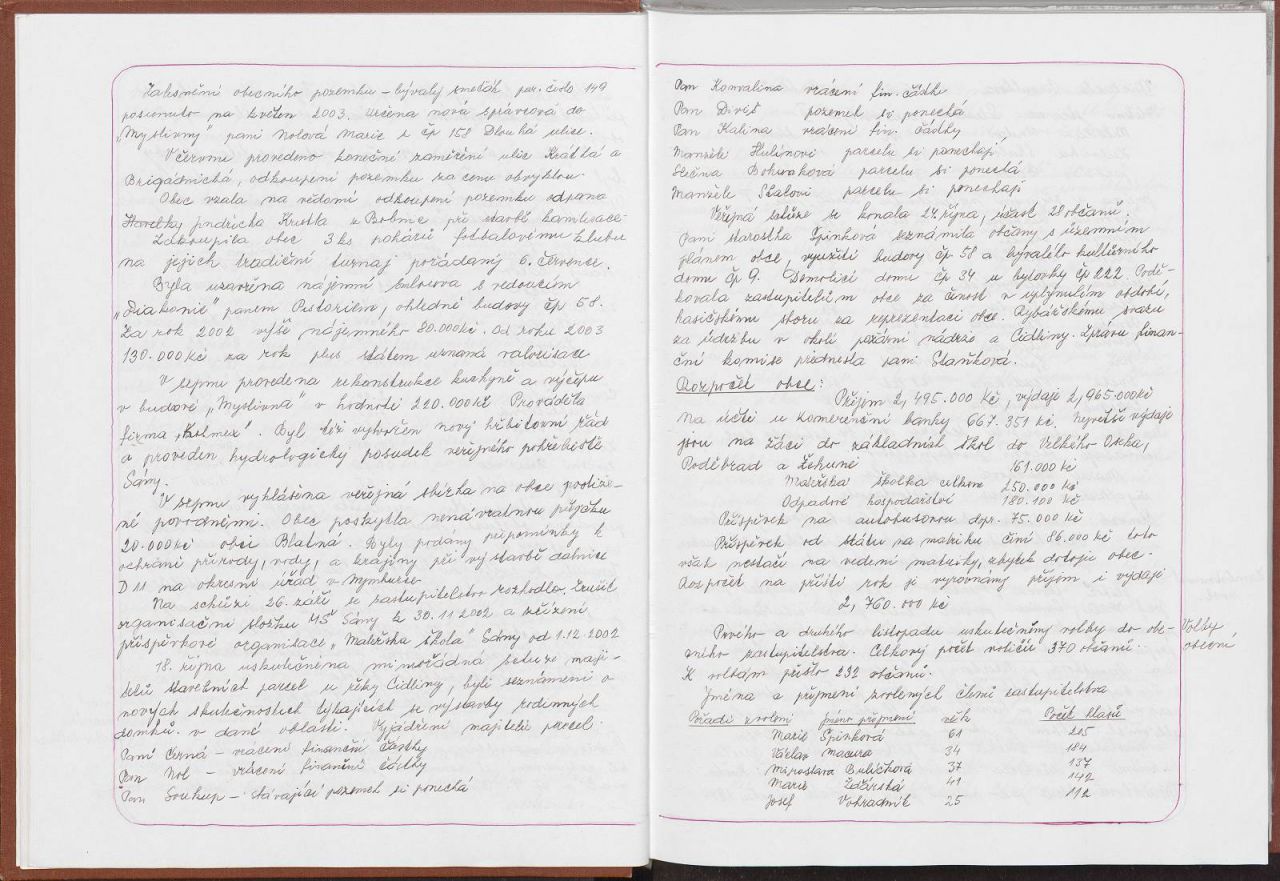 Zalesnění obecního pozemku – bývalý smeťák par. číslo 149
posunuto na květen 2003. Určena nová správcová do
„Myslivny" paní Nolová Marie z čp 158 Dlouhá ulice.
V červnu provedeno konečné zaměření ulic Krátká a
Brigádnická, odkoupení pozemku za cenu obvyklou.
Obec vzala na vědomí odkoupení pozemku odpana
Havelky Jindřicha Krutla z Bolmě při stavbě kamlisace
Zakoupila obec 3 ks pohárů fotbalovému klubu
na jejich tradiční turnaj pořádaný 6. července.
Byla uzavřena nájemní smlouva s vedoucím
„Diakonie" panem Pistoriem, ohledně budovy čp 58.
Za rok 2002 výše nájemného 80.000 Kč. Od roku 2003
130.000 Kč za rok plus státem uznaná valorisace
V srpnu provedena rekonstrukce kuchyně a výčepu
v budově „Myslivna" v hodnotě 220.000 Kč Prováděla
firma . Byl též vytvořen nový hřbitovní řád
a proveden hydrologický posudek veřejného pohřebiště
Sány.
V srpnu vyhlášena veřejná sbírka na obce postiže-
né povodněmi. Obec poskytla nenávratnou půjčku
20.000 Kč obci Blatná. Byly podány připomínky k
ochraně přírody, vody, a krajiny při výstavbě dálnice
D 11 na okresní úřad v Nymburce
Na schůzi 26. září se zastupitelstvo rozhodlo zrušit
organisační složku MŠ Sány k 30.11 2002 a zřízení
příspěvkové organisace „Mateřska škola" Sány od 1.12.2002
18. října uskutečněna mimořádná schuze maji-
telů stavebních parcel u řeky Cidliny, byli seznámeni o
nových skutečnostech týkajících se výstavby rodinných
domků. v dané oblasti. Vyjádření majitelů parcel.
Paní Černá – vrácení finanční částky
Pan Nol – vrácení finanční částky
Pan Soukup – stávající pozemek si ponechá
Pan Konvalina vrácení fin. částky
Pan Diviš pozemek si ponechá
Pan Kalina vrácení fin. částky
Manželé Hulínovi parcelu si ponechají
Slečna parcelu si ponechá
Manželé parcelu si ponechají
Veřejná schůze se konala 24. října, účast 28 občanů.
Paní starostka Špinková seznámila občany s územním
plánem obce, využití budovy čp 58 a bývalého kulturního
domu čp 9. Demolici domu čp 34 u bytovky čp 222. Podě-
kovala zastupitelům obce za činost v uplynulém období,
hasičskému sboru za reprezentaci obce. Rybářskému svazu
za údržbu v okolí požární nádrže a Cidliny. Zprávu finan-
ční komise přednesla paní Staňková.
Rozpočet obce:
Příjem 2,495.000 Kč, výdaje 2,965.000 Kč
Na účtě u Komerenční banky 667.351 Kč. Největší výdaje
jsou na žáci do základních škol do Velkého Oseka,
Poděbrad a Žehuně 161.000 Kč
Mateřská školka celkem 250.000 Kč
Odpadové hospodářství 180.100 Kč
Příspěvek na autobusovou dopr. 75.000 Kč
Příspěvek od státu na matriku činí 86.000 Kč toto
však nestačí na vedení matriky, zbytek dotuje obec.
Rozpočet na příští rok je vyrovnaný příjem i výdaje
2,760.000 Kč
Prvého a druhého listopadu uskutečněny volby do obe-
cního zastupitelstva. Celkový počet voličů 370 občanů.
K volbám přišlo 232 občanů.
Volby
obecní
Jména a přijmení zvolených členů zastupitelstva
Pořadí zvolení jméno přijmení věk Počet hlasů
Marie Špinková 61 205
Václav Macura 34 184
Miroslava Bulíčková 37 137
Marie Žďárská 41 142
Josef Vohradník 25 112